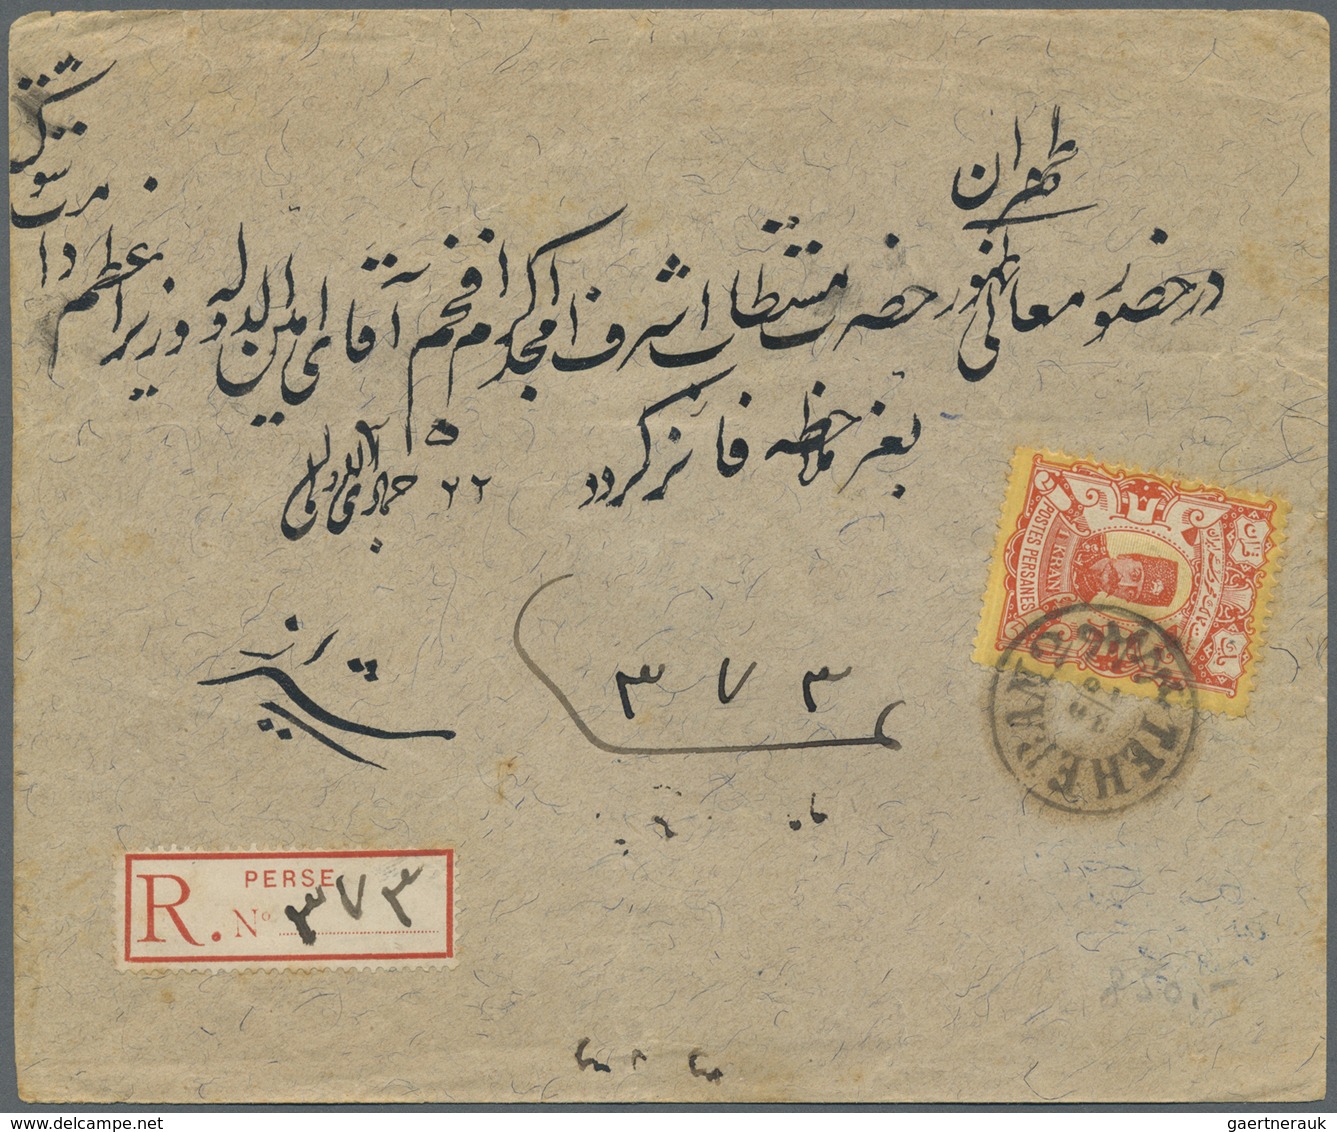 طهران
در حضور معالی ظهور حضرت مستطاب اشرف امجد اکرم افخم آقای امین الدوله وزیر اعظم دام
شوکته
بعز ملاحظه فائز گردد
۲۲ جمادی الاولی
۳۷۳
POSTES PERSANES
1 KRAN
TEHERAN
PERSE
R. Nº ۳۷۳
gaertnerauk